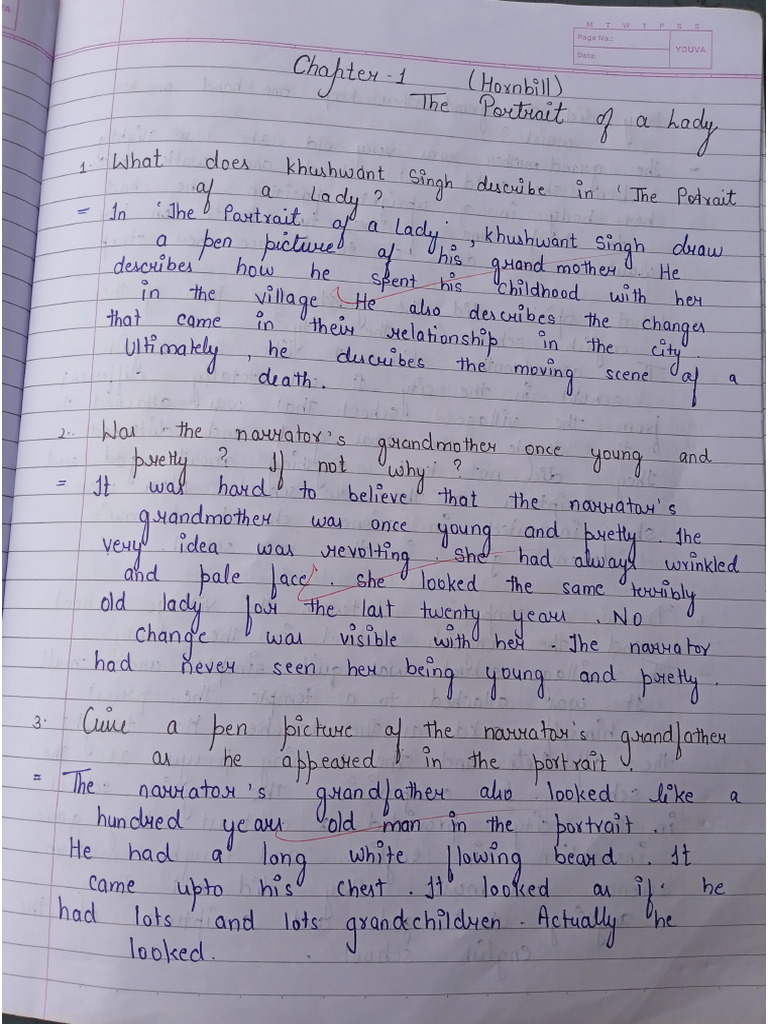 M T W T F S S
Page No.:
YOUVA
Date:
Chapter-1 (Hornbill)
The Portrait of a Lady
1. What does Khushwant Singh describe in 'The Potrait
of a Lady?
= In 'The Partrait of a Lady', Khushwant Singh draw
a pen picture of his grand mother. He
describes how he spent his childhood with her
in the village. He also describes the changes
that came in their relationship in the city.
Ultimately, he describes the moving scene of a
death.
2. Was the narrator's grandmother once young and
pretty? If not why?
= It was hard to believe that the narrator's
grandmother was once young and pretty. The
very idea was revolting. She had always wrinkled
and pale face. She looked the same terribly
old lady for the last twenty years. No
change was visible with her. The narrator
had never seen her being young and pretty.
3. Give a pen picture of the narrator's grandfather
as he appeared in the portrait.
= The narrator's grandfather also looked like a
hundred years old man in the portrait.
He had a long white flowing beard. It
came upto his chest. It looked as if he
had lots and lots grandchildren. Actually he
looked.